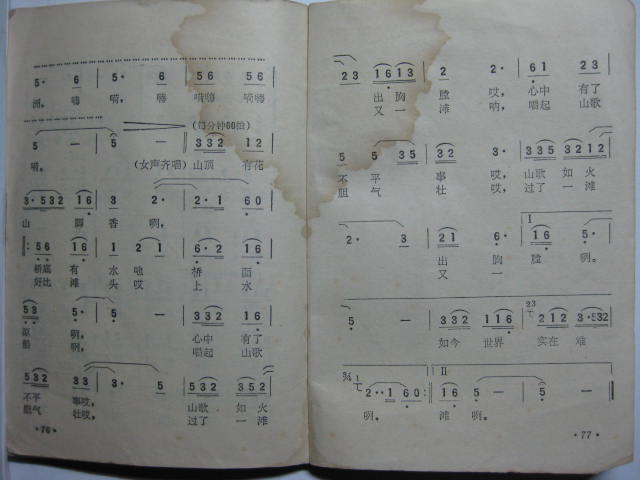 5· 6 5· 6 56 56
洲。嗨 嗬，嗨 嗬嗨 嗬嗨
(每分钟60拍)
5 — 5 — 332 12
嗬。 (女声齐唱)山顶 有花
3·532 16 2 — 2·1 60
山 脚 香 咧，
56 16 1 21 6·2 16
桥底 有 水 吔 桥 面
好比 滩 头 哎 上 水
53 5 — 332 116
凉 咧， 心中 有了
船 咧， 唱起 山歌
532 33 3· 5 532 352
不平 事哎， 山歌 如 火
胆气 壮哎， 过了 一 滩
·76·
23 1613 2 2· 61 23
出 胸 膛 哎， 心中 有了
又 一 滩 呐， 唱起 山歌
5 5 35 32 3· 335 3212
不 平 事 哎， 山歌 如 火
胆 气 壮 哎， 过了 一 滩
I
2· 3 21 6· 16 5·
出 胸 膛 咧。
又 一
5 — 332 116 212 3·532
如今 世界 实在 难
II
2··1 160: 16 5 5 —
咧。 滩 咧。
·77·